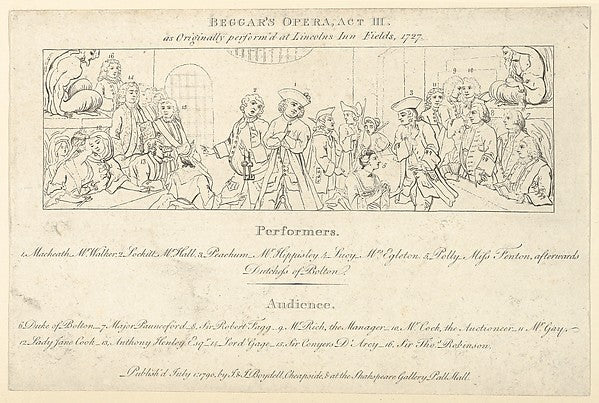 BEGGAR'S OPERA, ACT III.
as Originally perform'd at Lincolns Inn Fields, 1727.
16 14 15 13 2 1 3 11 9 10 8 5
Performers.
1, Macheath, Mr. Walker, 2, Lockitt, Mr. Hall, 3, Peachum, Mr. Hippisley, 4, Lucy, Mrs. Egleton, 5, Polly, Miss Fenton, afterwards
Dutchess of Bolton.
Audience.
6, Duke of Bolton, 7, Major Paunceford, 8, Sir Robert Fagg, 9, Mr. Rich, the Manager, 10, Mr. Cock, the Auctioneer, 11, Mr. Gay,
12, Lady Jane Cook, 13, Anthony Henley, Esqr. 14, Lord Gage, 15, Sir Conyers D'Arcy, 16, Sir Thos. Robinson.
Publish'd July 1: 1790, by J. & J. Boydell, Cheapside, & at the Shakspeare Gallery, Pall Mall.